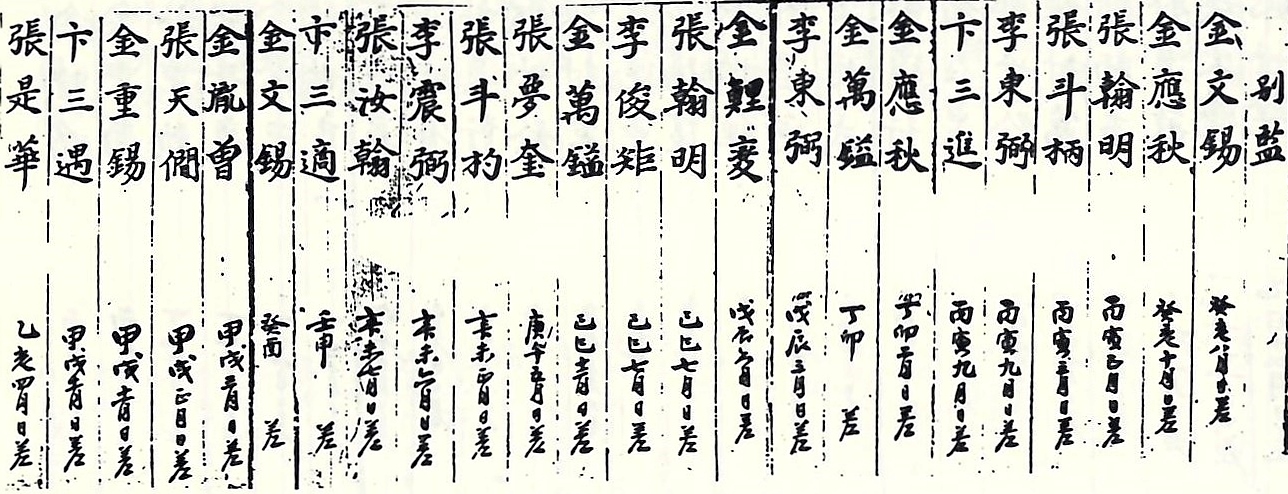 別監
金文錫 癸亥八月日差
金應秋 癸亥十月日差
張翰明 丙寅正月日差
張斗柄 丙寅三月日差
李東弼 丙寅九月日差
卞三進 丙寅九月日差
金應秋 丁卯二月日差
金萬鎰 丁卯 差
李東弼 戊辰三月日差
金鯉変 戊辰六月日差
張翰明 己巳七月日差
李俊矩 己巳七月日差
金萬鎰 己巳十一月日差
張夢奎 庚午五月日差
張斗杓 辛未正月日差
李震弼 辛未六月日差
張汝翰 辛未七月日差
卞三適 壬申 差
金文錫 癸酉 差
金胤曾 甲戌 月日差
張天僩 甲戌正月日差
金重錫 甲戌 月日差
卞三遇 甲戌 月日差
張是華 乙亥四月日差